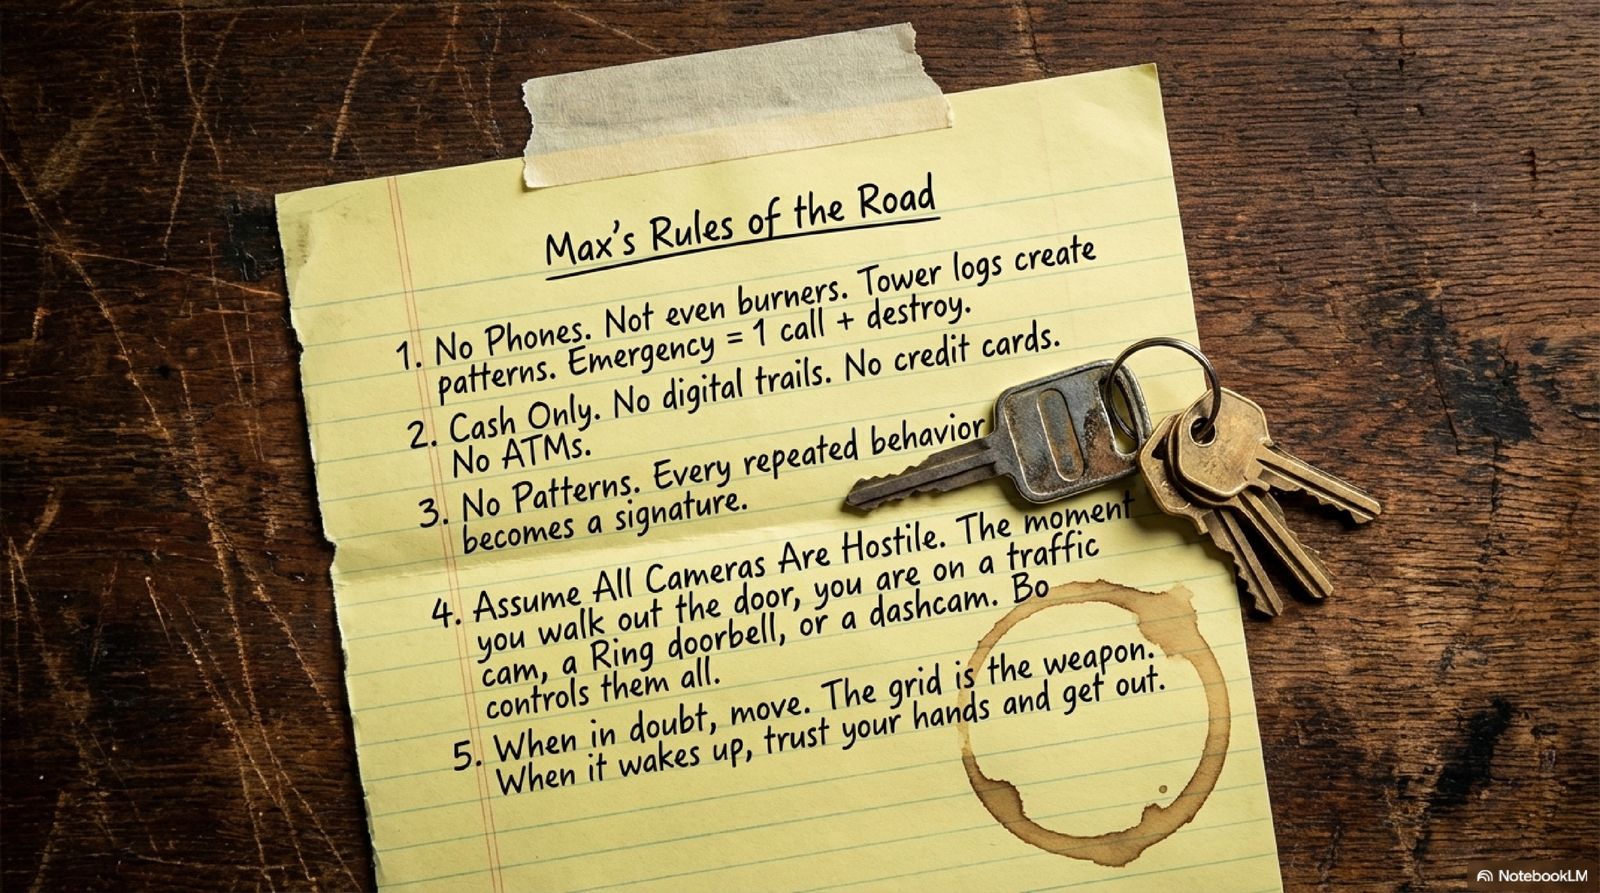 Max's Rules of the Road
1. No Phones. Not even burners. Tower logs create
patterns. Emergency = 1 call + destroy.
2. Cash Only. No digital trails. No credit cards.
No ATMs.
3. No Patterns. Every repeated behavior
becomes a signature.
4. Assume All Cameras Are Hostile. The moment
you walk out the door, you are on a traffic
cam, a Ring doorbell, or a dashcam. Bo
controls them all.
5. When in doubt, move. The grid is the weapon.
When it wakes up, trust your hands and get out.
NotebookLM